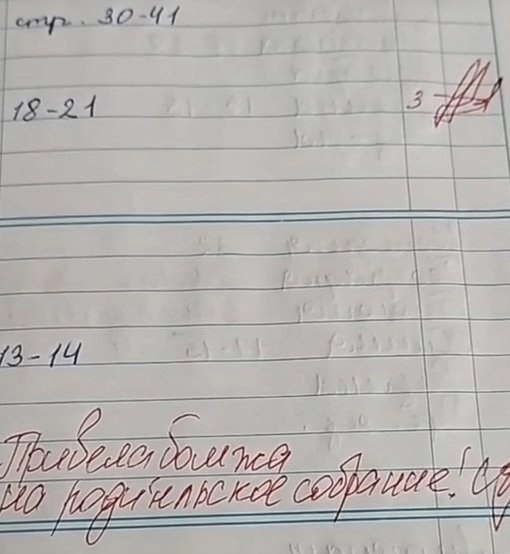 стр. 30-41
18-21
3
13-14
Привела бомжа
на родительское собрание!